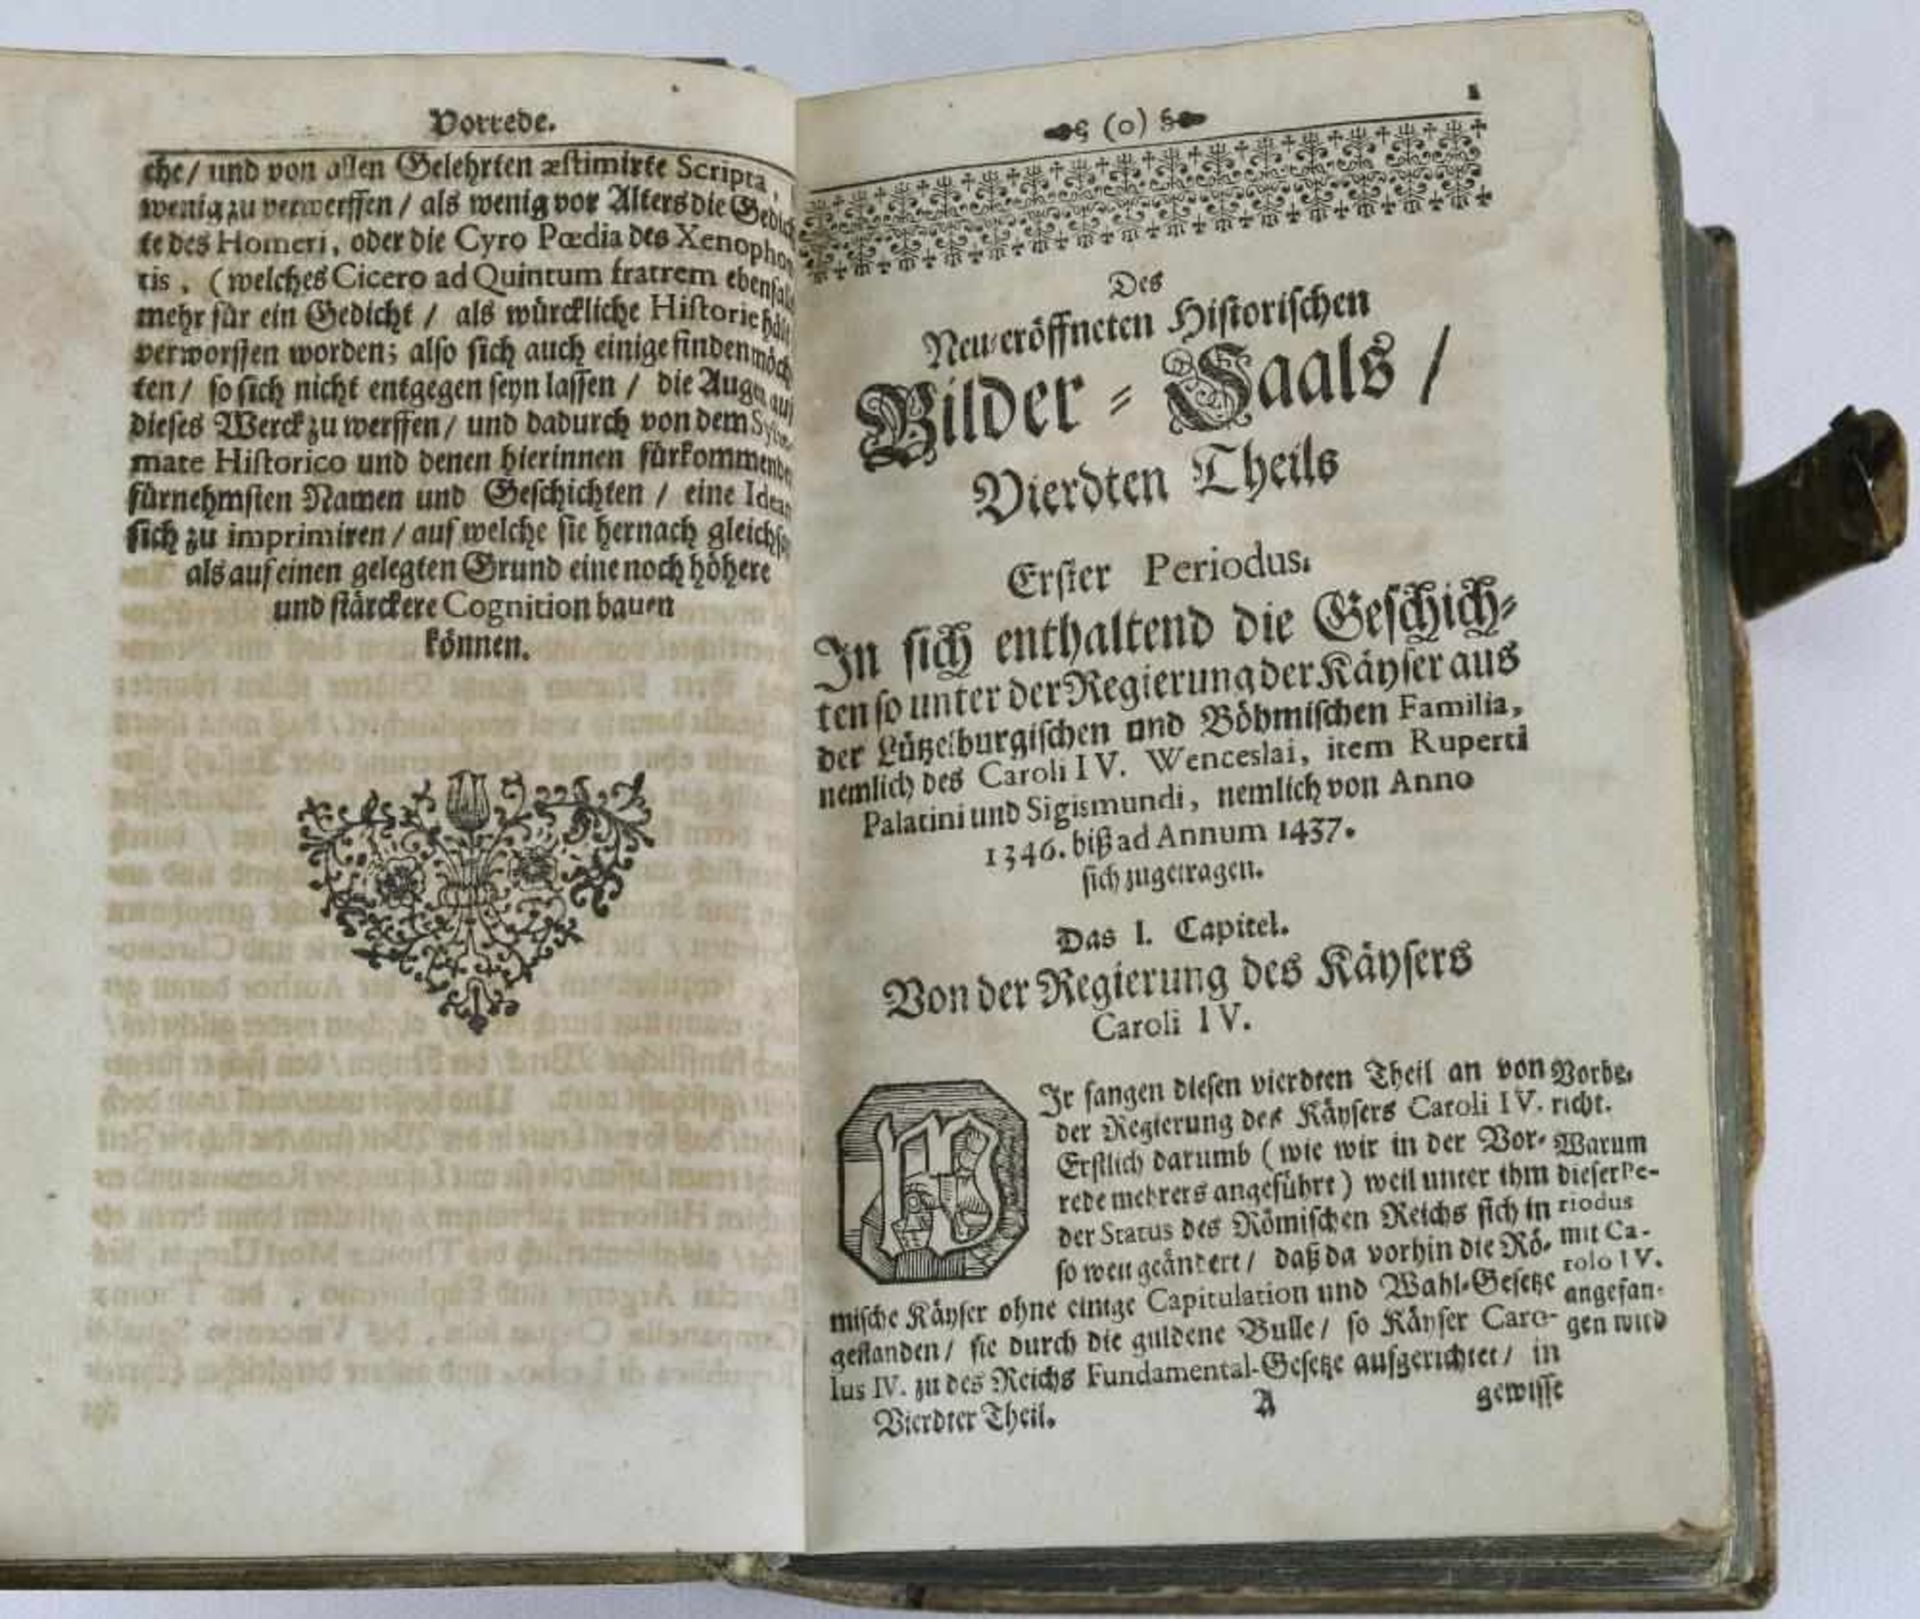 Vorrede.
che / und von allen Gelehrten æstimirte Scripta,
wenig zu verwerffen / als wenig vor Alters die Gedich
te des Homeri, oder die Cyro Pœdia des Xenophon
tis, (welches Cicero ad Quintum fratrem ebenfals
mehr für ein Gedicht / als würckliche Historie hält
verworffen worden; also sich auch einige finden möch
ten / so sich nicht entgegen seyn lassen / die Augen auf
dieses Werck zu werffen / und dadurch von dem
mate Historico und denen hierinnen fürkommenden
fürnehmsten Namen und Geschichten / eine Idean
sich zu imprimiren / auf welche sie hernach gleichsam
als auf einen gelegten Grund eine noch höhere
und stärckere Cognition bauen
können.
(0) 1
Des
Neu-eröffneten Historischen
Bilder-Saals /
Vierdten Theils
Erster Periodus.
In sich enthaltend die Geschich-
ten so unter der Regierung der Käyser aus
der Lützelburgischen und Böhmischen Familia,
nemlich des Caroli IV. Wenceslai, item Ruperti
Palatini und Sigismundi, nemlich von Anno
1346. biß ad Annum 1437.
sich zugetragen.
Das I. Capitel.
Von der Regierung des Käysers
Caroli IV.
WIr fangen diesen vierdten Theil an von
der Regierung des Käysers Caroli IV.
Erstlich darumb (wie wir in der Vor-
rede mehrers angeführt) weil unter ihm
der Status des Römischen Reichs sich in
so weit geändert / daß da vorhin die Rö-
mische Käyser ohne einige Capitulation und Wahl-Gesetze
gestanden / sie durch die guldene Bulle / so Käyser Caro-
lus IV. zu des Reichs Fundamental-Gesetze aufgerichtet / in
Vierdter Theil. A gewisse
Vorbe-
richt.
Warum
dieser Pe-
riodus
mit Ca-
rolo IV.
angefan-
gen wird